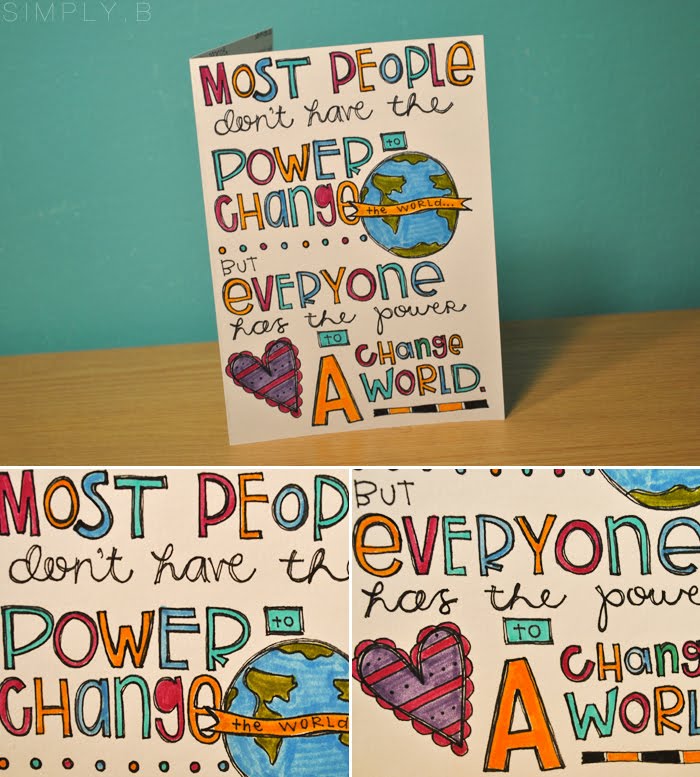 SIMPLY.B
MOST PEOPLE
don't have the
POWER to
CHANGE the WORLD...
BUT
EVERYONE
has the power
to
CHANGE
A WORLD.
MOST PEOP
don't have th
POWER to
CHANGE the WORLD
BUT
EVERYONE
has the powe
to
CHANG
A WORL